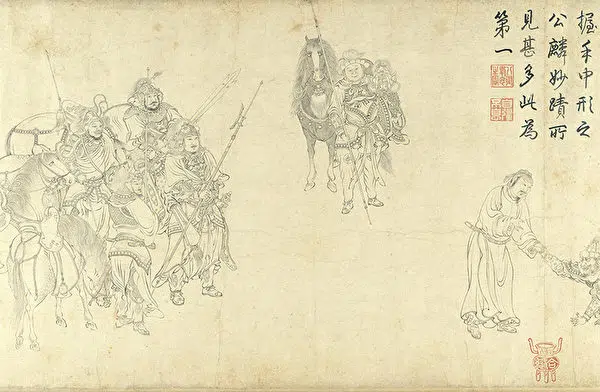 握手中形之
公麟妙蹟所
見甚多此為
第一